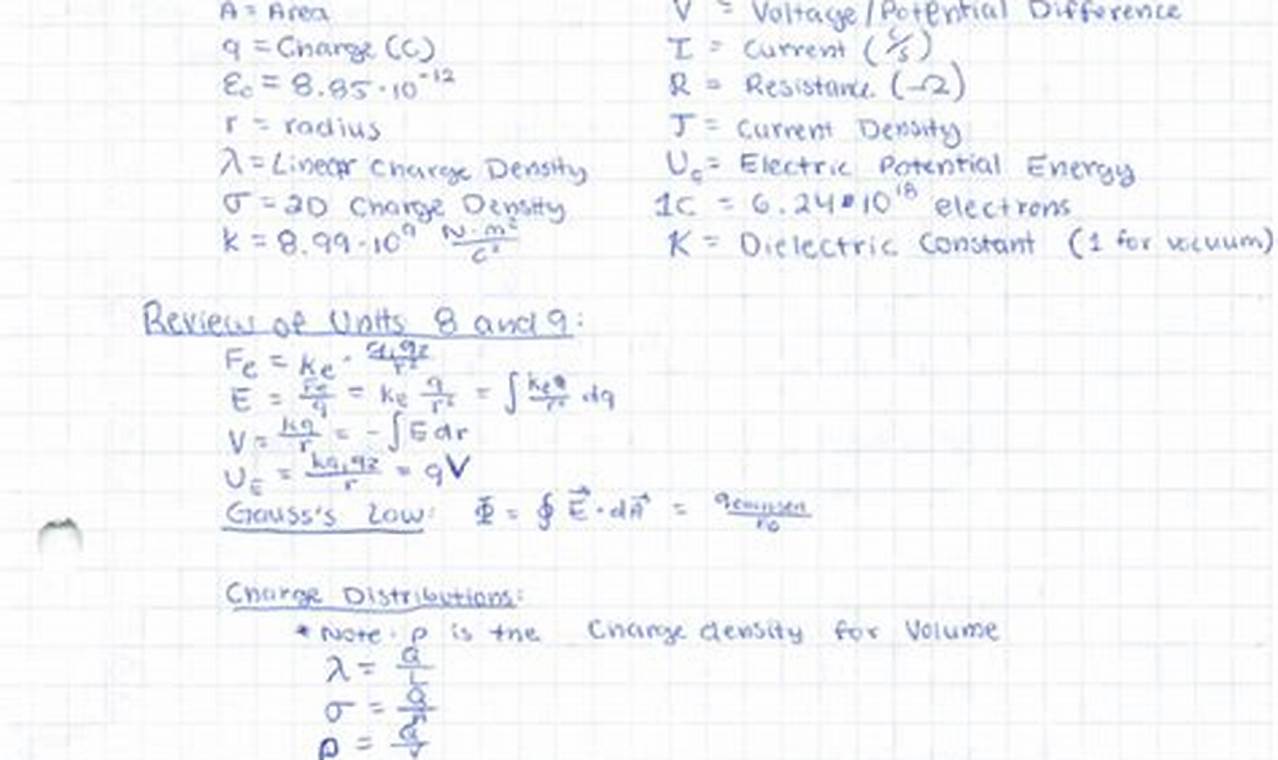 A = Area
q = Charge (C)
ε₀ = 8.85·10⁻¹²
r = radius
λ = Linear Charge Density
σ = 2D Charge Density
k = 8.99·10⁹ N·m²/C²
V = Voltage/Potential Difference
I = Current (C/s)
R = Resistance (Ω)
J = Current Density
Uₑ = Electric Potential Energy
1C = 6.24·10¹⁸ electrons
K = Dielectric Constant (1 for vacuum)
Review of Units 8 and 9:
Fe = ke · q₁q₂/r²
E = Fe/q = ke q/r² = ∫ dq
V = kq/r = -∫E dr
U_E = kq₁q₂/r = qV
Gauss's Law: Φ = ∮ E⃗·dA⃗ =
Charge Distributions:
* Note: ρ is the Charge density for Volume
λ = Q/L
σ = Q/A
ρ = Q/V